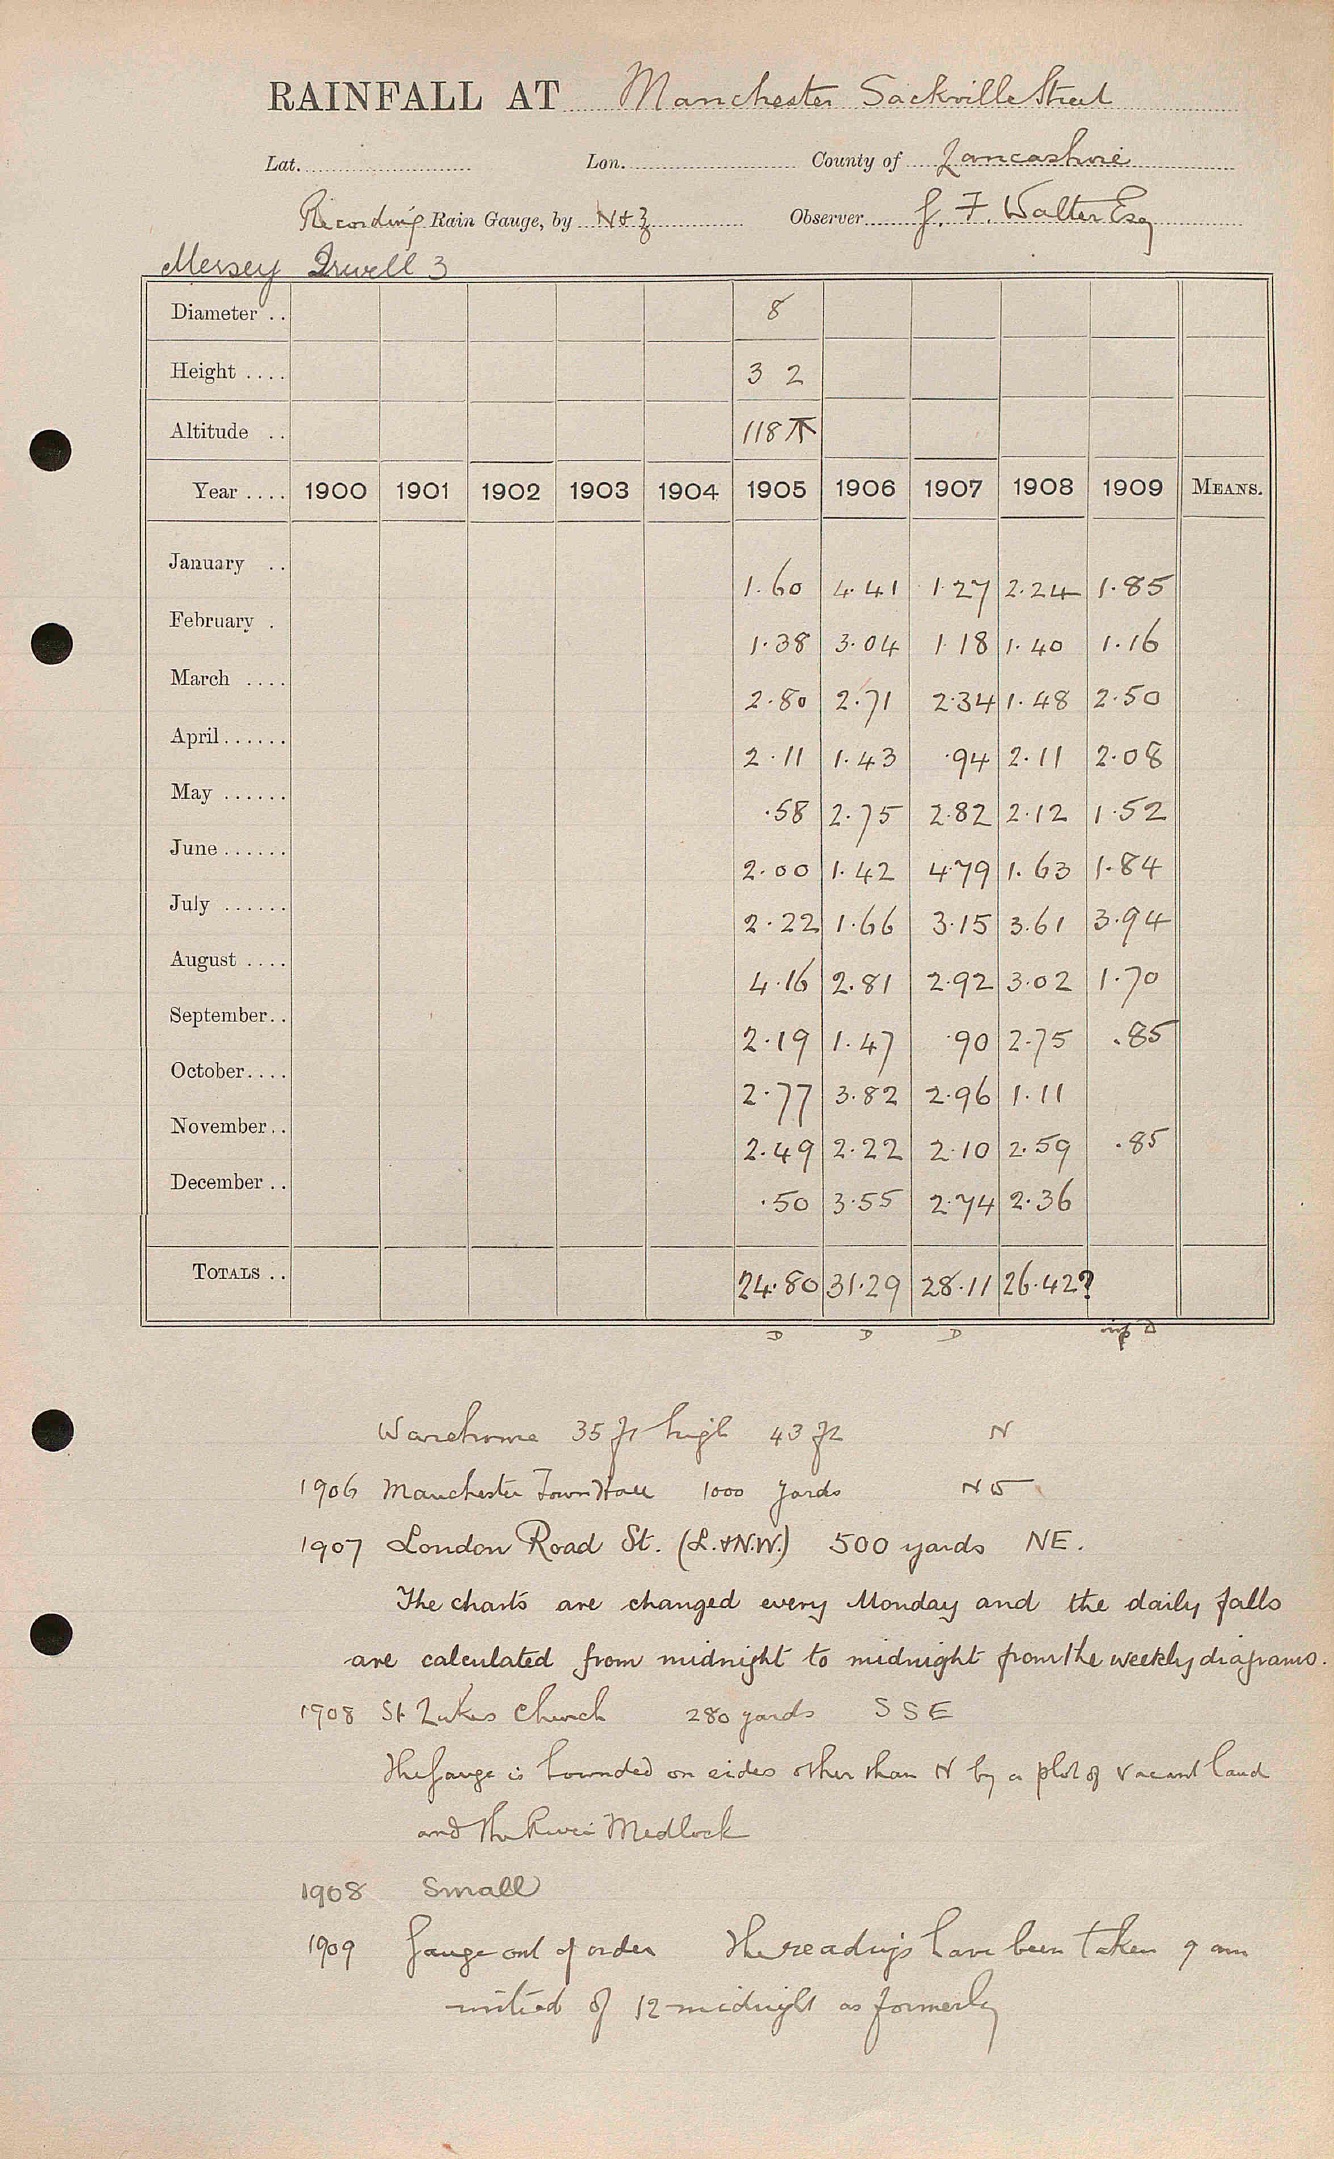 RAINFALL AT Manchester Sackville Street
Lat. Lon. County of Lancashire
Recording Rain Gauge, by N & Z Observer J. F. Walter Esq
Mersey Irwell 3
Diameter .. 8
Height .... 3 2
Altitude .. 118
Year .... 1900 1901 1902 1903 1904 1905 1906 1907 1908 1909 MEANS.
January .. 1.60 4.41 1.27 2.24 1.85
February . 1.38 3.04 1.18 1.40 1.16
March .... 2.80 2.71 2.34 1.48 2.50
April...... 2.11 1.43 .94 2.11 2.08
May ...... .58 2.75 2.82 2.12 1.52
June ...... 2.00 1.42 4.79 1.63 1.84
July ...... 2.22 1.66 3.15 3.61 3.94
August .... 4.16 2.81 2.92 3.02 1.70
September.. 2.19 1.47 .90 2.75 .85
October.... 2.77 3.82 2.96 1.11
November.. 2.49 2.22 2.10 2.59 .85
December .. .50 3.55 2.74 2.36
TOTALS .. 24.80 31.29 28.11 26.42?
D D D D
Warehouse 35 ft high 43 ft N
1906 Manchester Town Hall 1000 yards N
1907 London Road St. (L.&N.W.) 500 yards NE.
The charts are changed every Monday and the daily falls
are calculated from midnight to midnight from the weekly diagrams.
1908 St Lukes Church 280 yards SSE
The gauge is bounded on sides other than N by a plot of vacant land
and the River Medlock
1908 Small
1909 Gauge out of order The readings have been taken 9 am
instead of 12 midnight as formerly